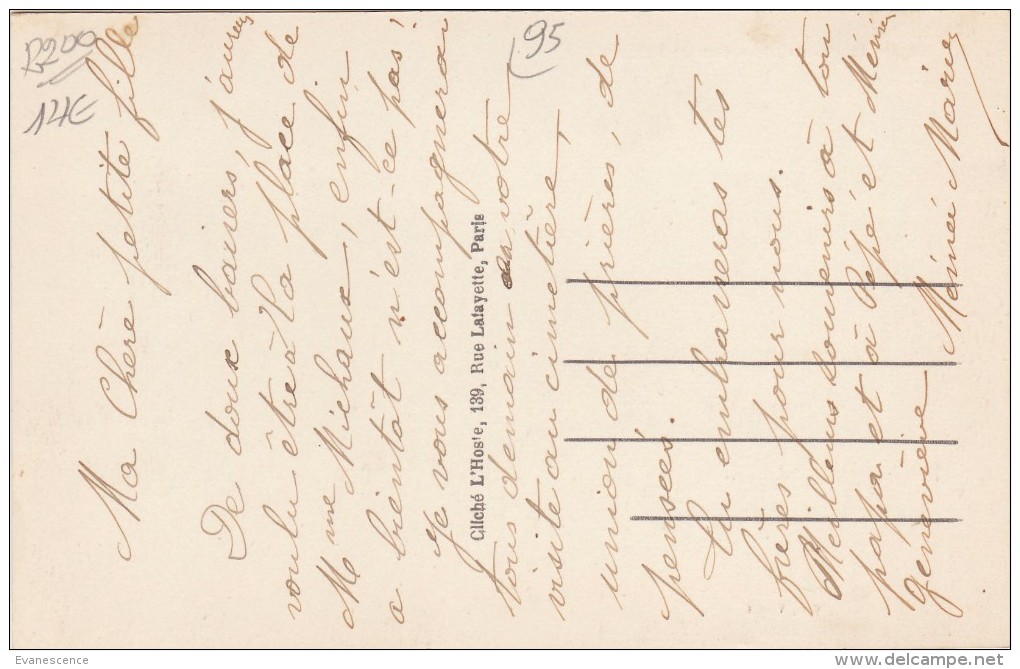 Ma Chère petite fille
De doux baisers, j'aurais
voulu être à la place de
Mme Michaux, enfin
a bientôt n'est-ce pas!
Je vous accompagnerai
tous demain votre
visite au cimetière,
union de prières, de
pensées.
Tu embrasseras tes
frères pour nous.
Meilleurs souvenirs à ton
papa et à Pépé et Mémée
geneviève Mémée Marie
Cliché L'Hoste, 139, Rue Lafayette, Paris
R200
14€
95
Evanescence
delcampe.net